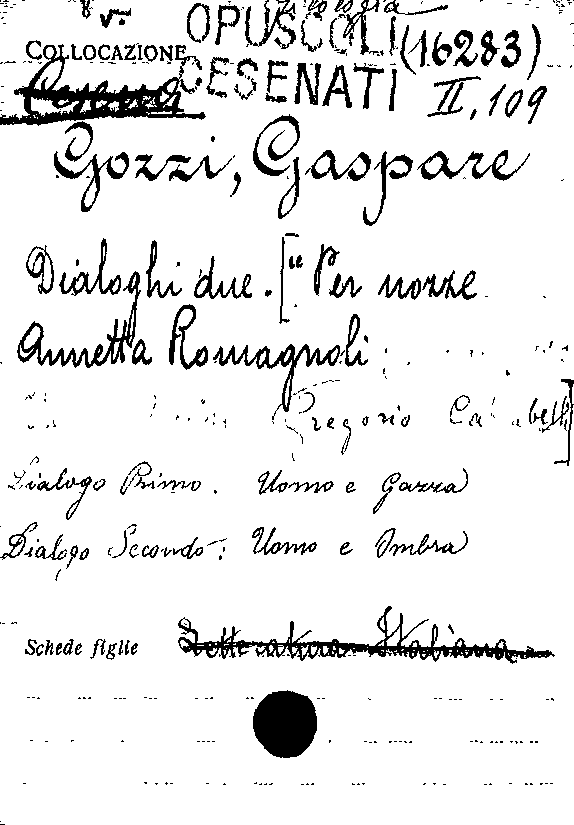 v.
OPUSCOLI (16283)
COLLOCAZIONE
Cesena CESENATI II, 109
Gozzi, Gaspare
Dialoghi due. ["Per nozze
Annetta Romagnoli
Gregorio
Dialogo Primo. Uomo e Gazza
Dialogo Secondo: Uomo e Ombra
Schede figlie Letteratura Italiana